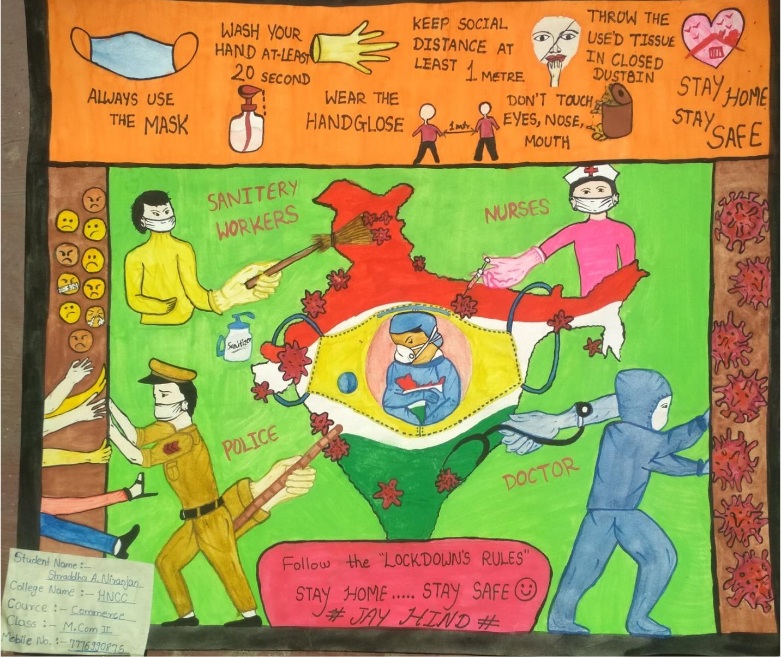 WASH YOUR
HAND AT-LEAST
20 SECOND
KEEP SOCIAL
DISTANCE AT
LEAST 1 METRE
THROW THE
USE'D TISSUE
IN CLOSED
DUSTBIN
ALWAYS USE
THE MASK
WEAR THE
HANDGLOSE
1 mtr.
DON'T TOUCH
EYES, NOSE,
MOUTH
STAY HOME
STAY
SAFE
SANITERY
WORKERS
NURSES
Sanitizer
POLICE
DOCTOR
Follow the "LOCKDOWN'S RULES"
STAY HOME..... STAY SAFE
# JAY HIND #
Student Name:-
Shraddha A. Niranjan
College Name:- HNCC
Cource:- Commerce
Class:- M.Com II
Mobile No.:- 7776990875